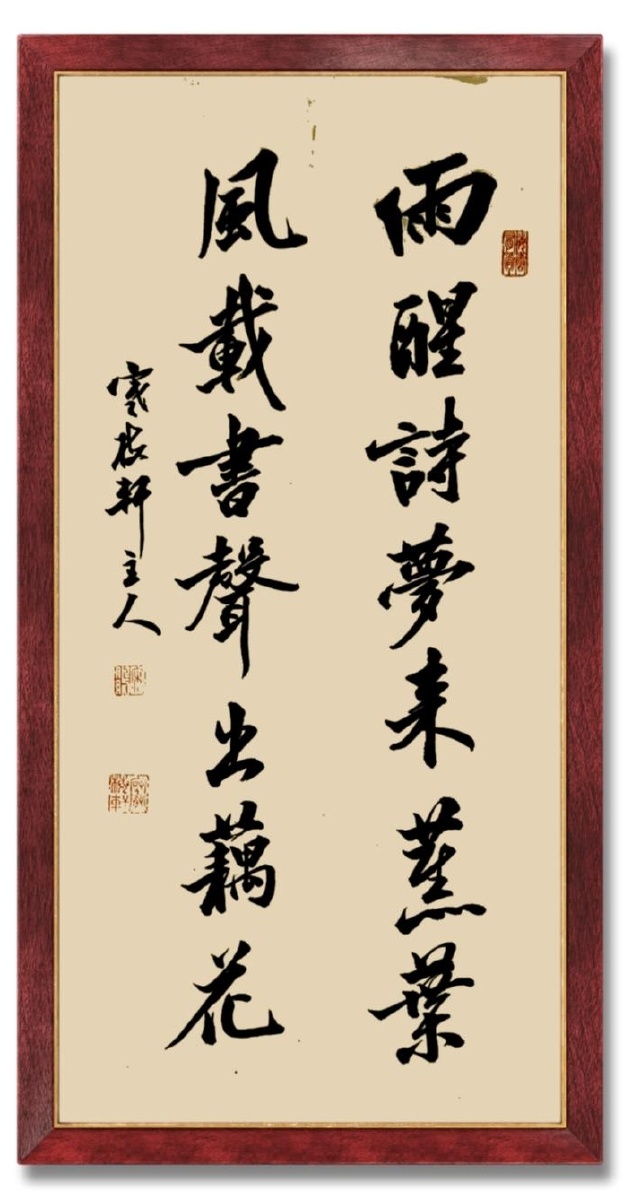 雨醒詩夢来蕉葉
風載書聲出藕花
寒枝軒主人